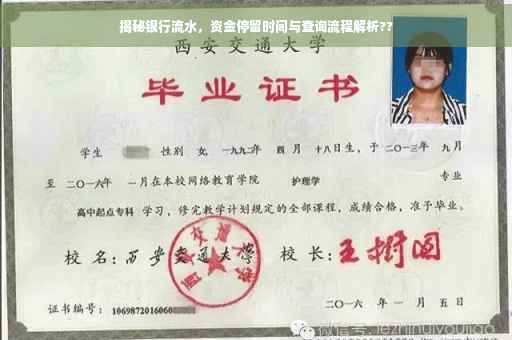 揭秘银行流水，资金停留时间与查询流程解析??
西安交通大学
毕业证书
学生 性别 女，一九九二年 四月 十八日生，于二〇一三年 九月
至 二〇一六年 一月在本校网络教育学院 护理学 专业
高中起点专科 学习，修完教学计划规定的全部课程，成绩合格，准予毕业。
校名：西安交通大学 校长：王树国
证书编号：1069872016060
二〇一六年 一月 五日
微信号: jezhihuiyoujiao